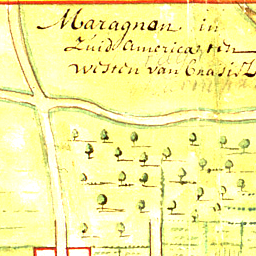 Maragnon in
Zuid America, ten
westen van